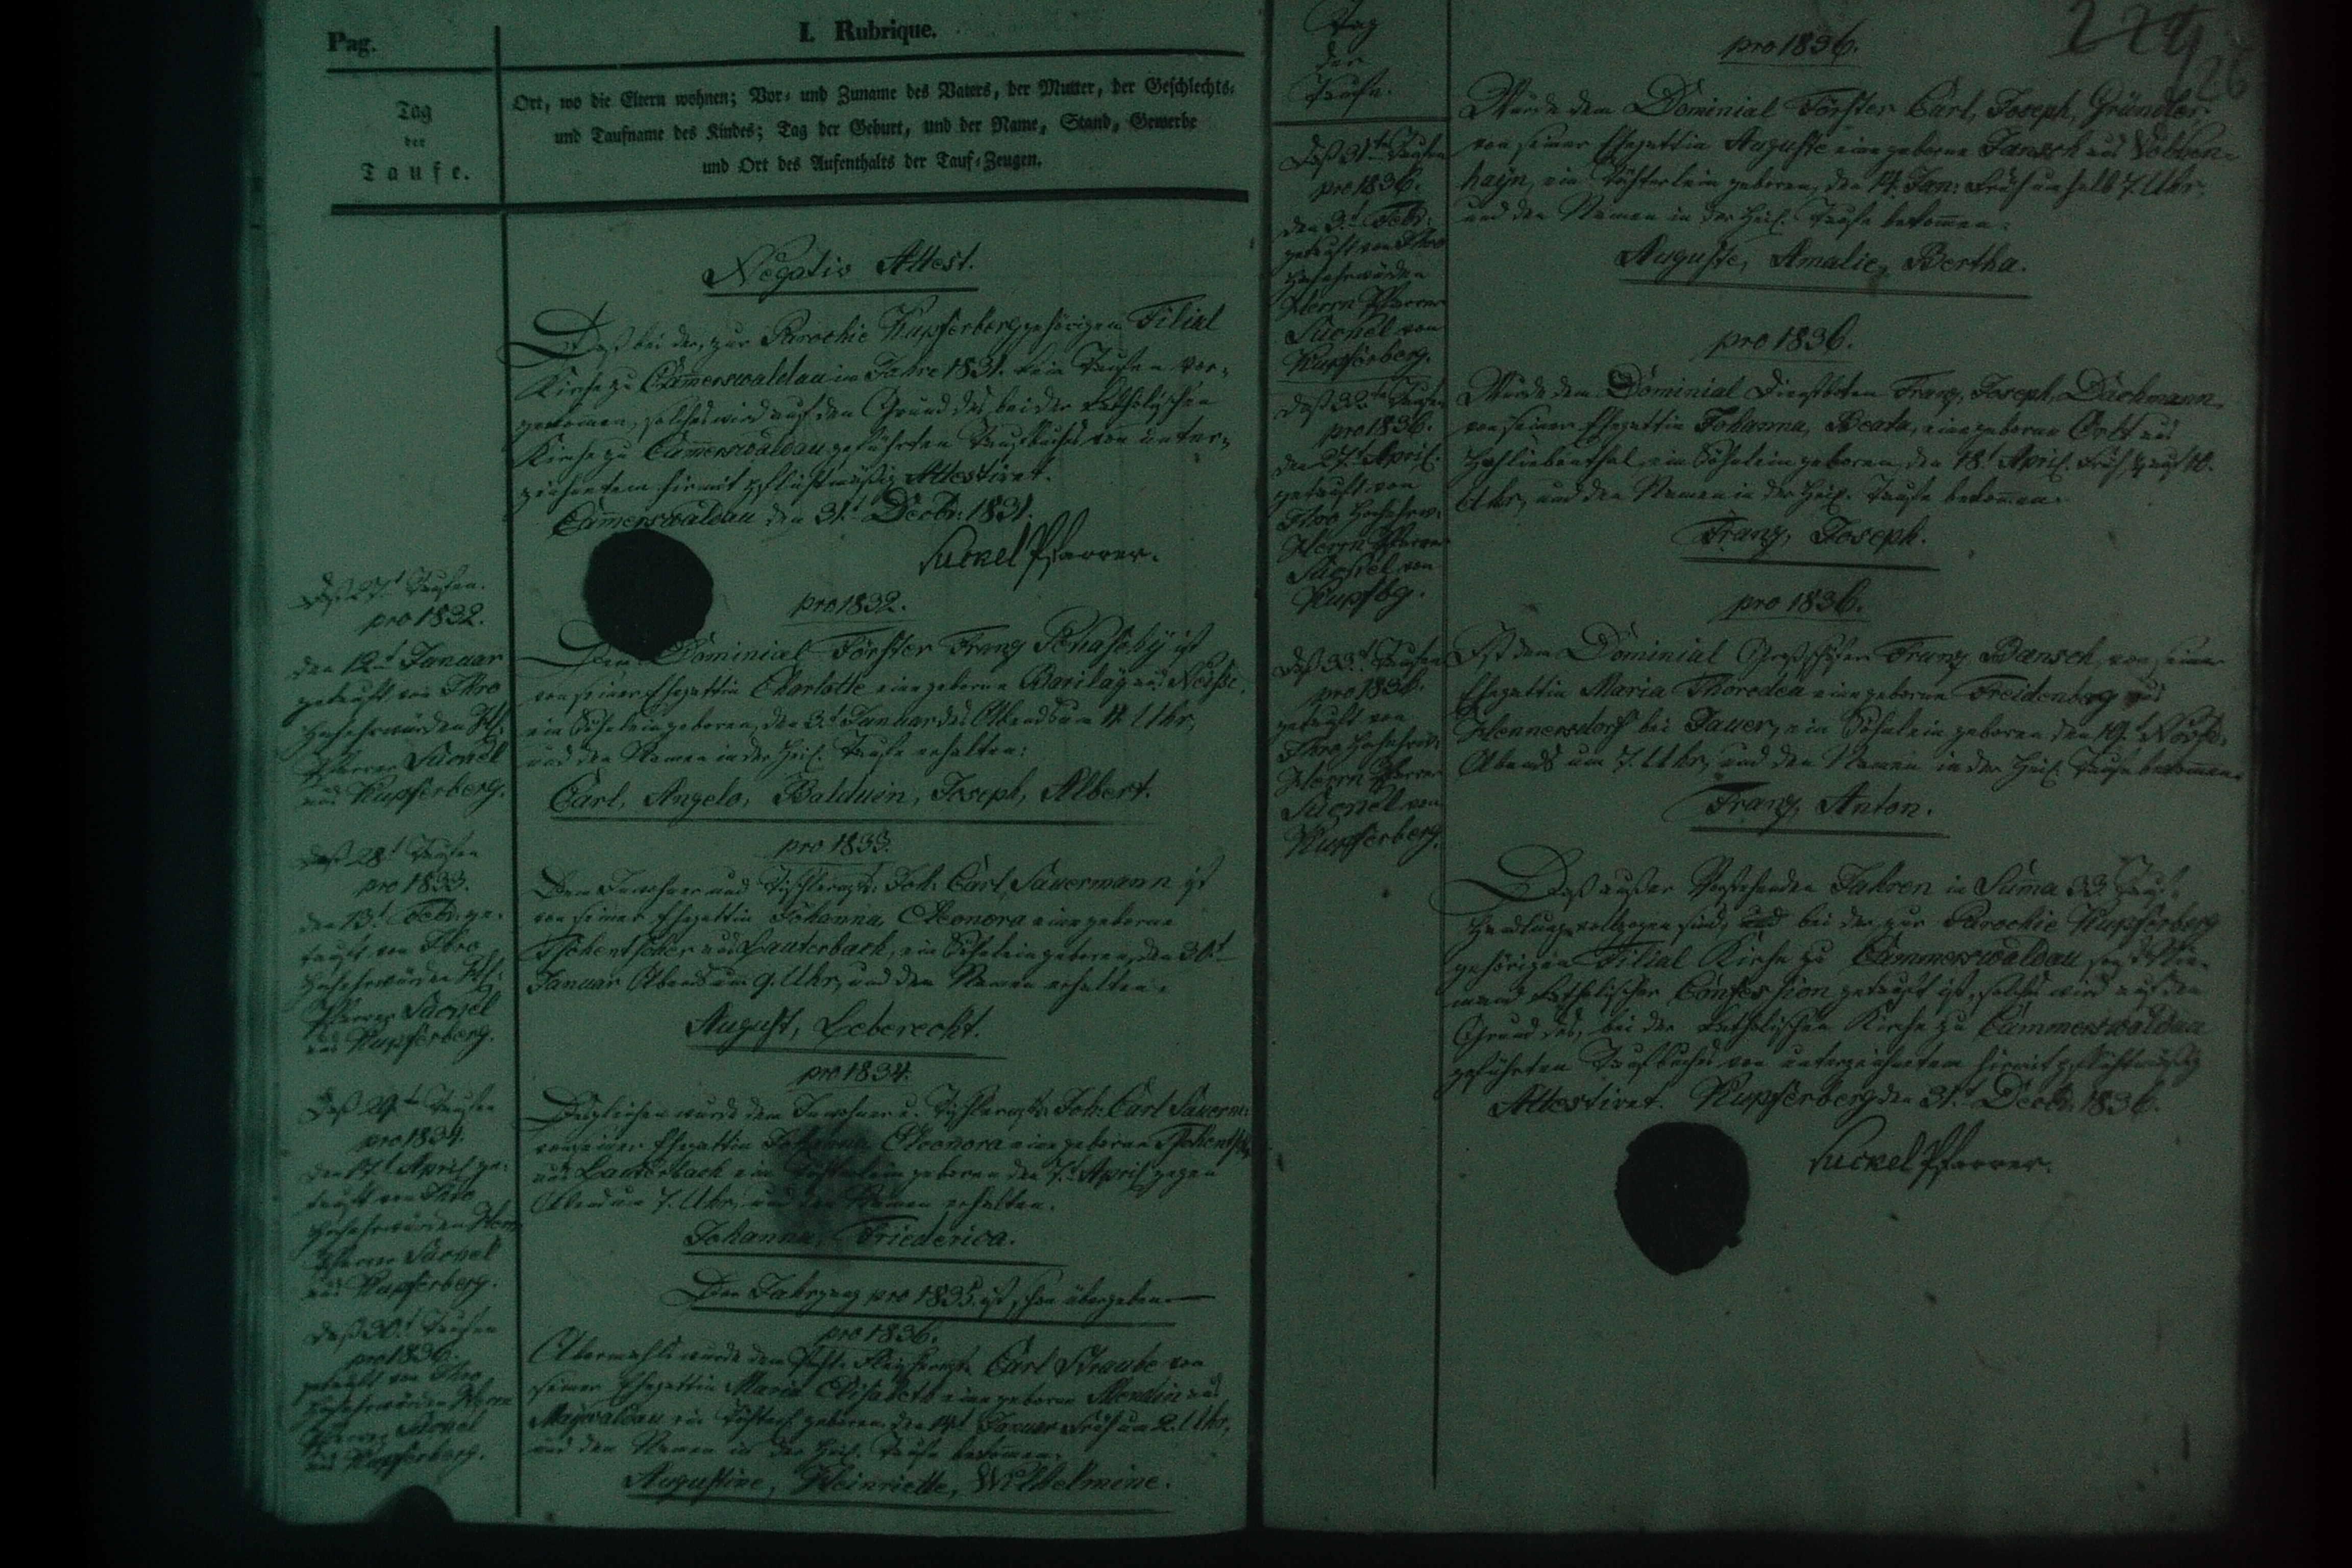 Pag.
I. Rubrique.
Tag
der
Taufe.
Ort, wo die Eltern wohnen; Vor- und Zuname des Vaters, der Mutter, der Geschlechts-
und Taufname des Kindes; Tag der Geburt, und der Name, Stand, Gewerbe
und Ort des Aufenthalts der Tauf-Zeugen.
Negativ Attest.
Daß bei der, zur Parochie Kupferberg gehörigen Filial
Kirche zu Cam̄erswaldau im Jahre 1831. kein Taufen vor-
gekom̄en, solches wird auf den Grund des bei der Katholischen
Kirche zu Cam̄erswaldau geführten Taufbuches von unter-
zeichnetem hiermit pflichtmäßig Attestiret.
Cam̄erswaldau den 31t Decbr: 1831.
Suckel Pfarrer.
Das 27t Taufen.
pro 1832.
den 12t Januar
getauft von Ihro
Hochehrwürden H:
Pfarrer Suckel
aus Kupferberg.
pro 1832.
Dem Dominial Förster Franz ist
von seiner Ehegattin Charlotte eine geborne aus Neiße,
ein Söhnlein geboren, den 3t Januar des Abends um 11. Uhr,
und den Namen in der Heil. Taufe erhalten:
Carl, Angelo, Balduin, Joseph, Albert.
Das 28t Taufen
pro 1833.
den 13t Febr: ge-
tauft von Ihro
Hochehrwürden H:
Pfarrer Suckel
aus Kupferberg.
pro 1833.
Dem Inwohner und Joh: Carl Sauermann ist
von seiner Ehegattin Johanna, Eleonora eine geborne
Tschentscher aus Lauterbach, ein Söhnlein geboren, den 30t
Januar Abends um 9. Uhr, und den Namen erhalten:
August, Leberecht.
Das 29t Taufen
pro 1834.
den 17t April ge-
tauft von Ihro
Hochehrwürden Herrn
Pfarrer Suckel
aus Kupferberg.
pro 1834.
Desgleichen wurde dem Inwohner u. Joh: Carl Sauerm:
von seiner Ehegattin Johanna Eleonora eine geborne Tschentsch:
aus Lauterbach ein Töchterlein geboren den 7t April gegen
Abend um 7. Uhr, und den Namen erhalten.
Johanna, Friederica.
Der Jahrgang pro 1835. ist schon übergeben.
Das 30t Taufen
pro 1836.
getauft von Ihro
Hochehrwürden Herrn
Pfarrer Suckel
aus Kupferberg.
pro 1836.
Abermahls wurde dem Carl Straube von
seiner Ehegattin Maria Elisabeth eine geborne aus
Maywaldau ein Töchterl. geboren den 14t Januar Früh um 2. Uhr,
und den Namen in der Heil. Taufe bekom̄en:
Augustine, Heinriette, Wilhelmine.
Tag
der
Taufe.
224
126
Das 31te Taufen
pro 1836.
den 3t Febr:
getauft von Ihro
Hochehrwürden
Herrn Pfarrer
Suckel von
Kupferberg.
pro 1836.
Wurde dem Dominial Förster Carl, Joseph, Gründler
von seiner Ehegattin Auguste eine geborne aus Volken-
hayn, ein Töchterlein geboren, den 14. Jan: Früh um halb 7. Uhr,
und den Namen in der Heil. Taufe bekom̄en:
Auguste, Amalie, Bertha.
Das 32te Taufen
pro 1836.
den 27t April.
getauft von
Ihro Hochehrw:
Herrn Pfarrer
Suckel von
Kupfbg.
pro 1836.
Wurde dem Dominial Dienstboten Franz, Joseph, Dachmann,
von seiner Ehegattin Johanna, Beata, eine geborne aus
Hohliebenthal, ein Söhnlein geboren, den 18t April. Früh 10.
Uhr, und den Namen in der Heil. Taufe bekom̄en:
Franz, Joseph.
Das 33t Taufen
pro 1836.
getauft von
Ihro Hochehrw:
Herrn Pfarrer
Suckel von
Kupferberg.
pro 1836.
Ist dem Dominial Franz Bansch, von seiner
Ehegattin Maria eine geborne Freidenberg aus
Hennersdorf bei Jauer, ein Söhnlein geboren den 19t
Abends um 7. Uhr, und den Namen in der Heil. Taufe bekom̄en:
Franz, Anton.
Daß außer Vorstehenden Jahren in Suma 33. Tauf-
Handlungen vollzogen sind, und bei der zur Parochie Kupferberg
gehörigen Filial Kirche zu Cammerswaldau sonst Nie-
mand katholischer Confession getauft ist, solches wird auf den
Grund des, bei der Katholischen Kirche zu Cammerswaldau
geführten Taufbuches von unterzeichnetem hiermit pflichtmäßig
Attestiret. Kupferberg den 31t Decbr: 1836.
Suckel Pfarrer.